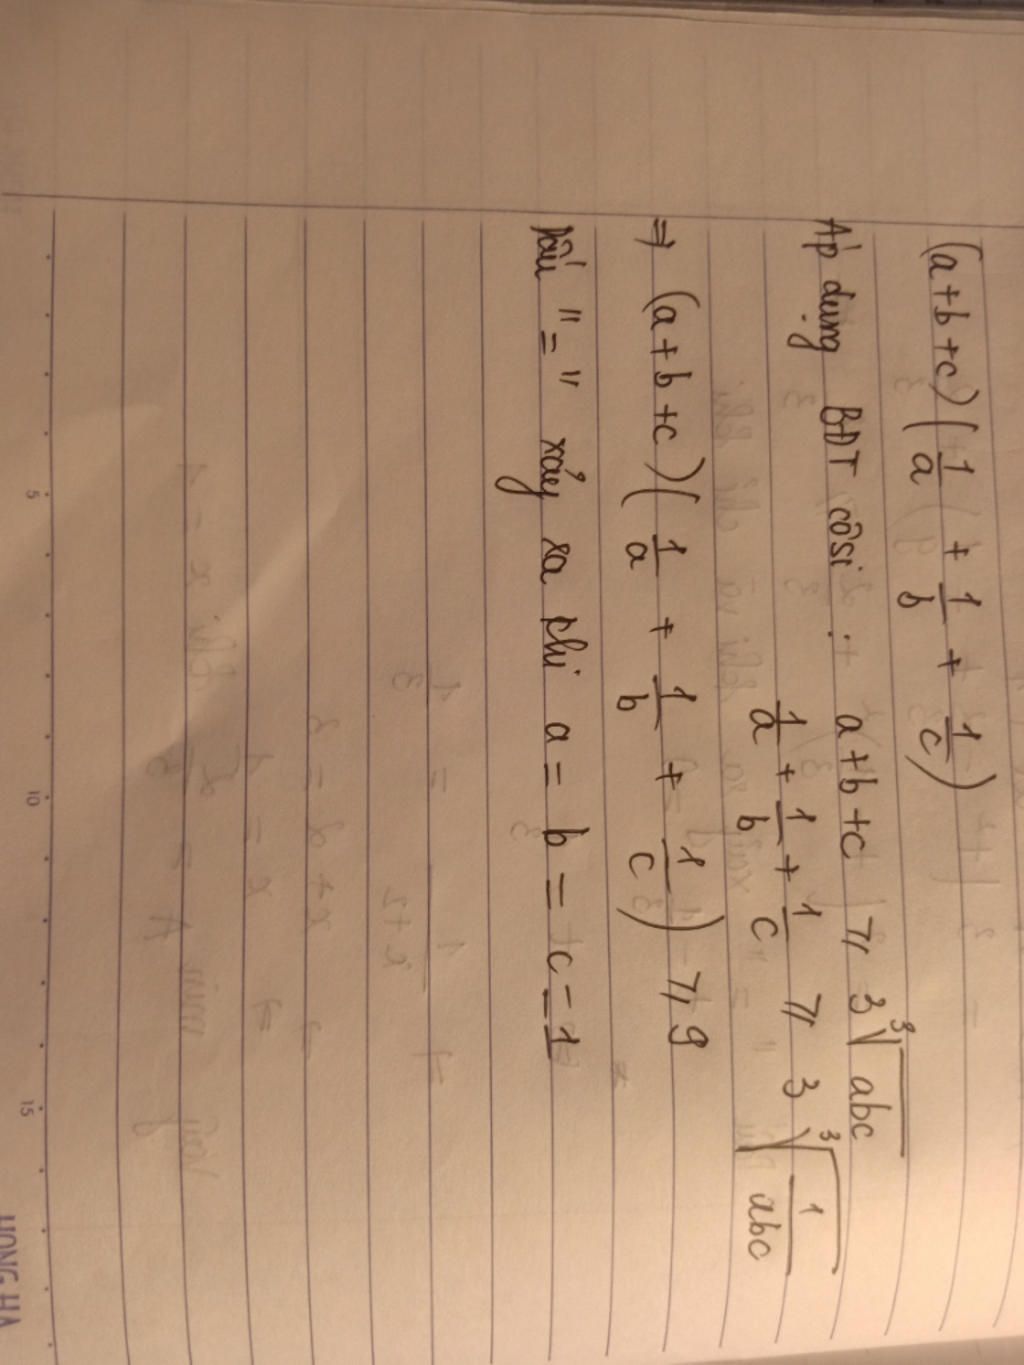 (a+b+c)(1/a + 1/b + 1/c)
Áp dụng BĐT côsi : a+b+c ≥ 3∛abc
1/a + 1/b + 1/c ≥ 3∛(1/abc)
⇒ (a+b+c)(1/a + 1/b + 1/c) ≥ 9
Dấu "=" xảy ra khi a = b = c = 1
5
10
15